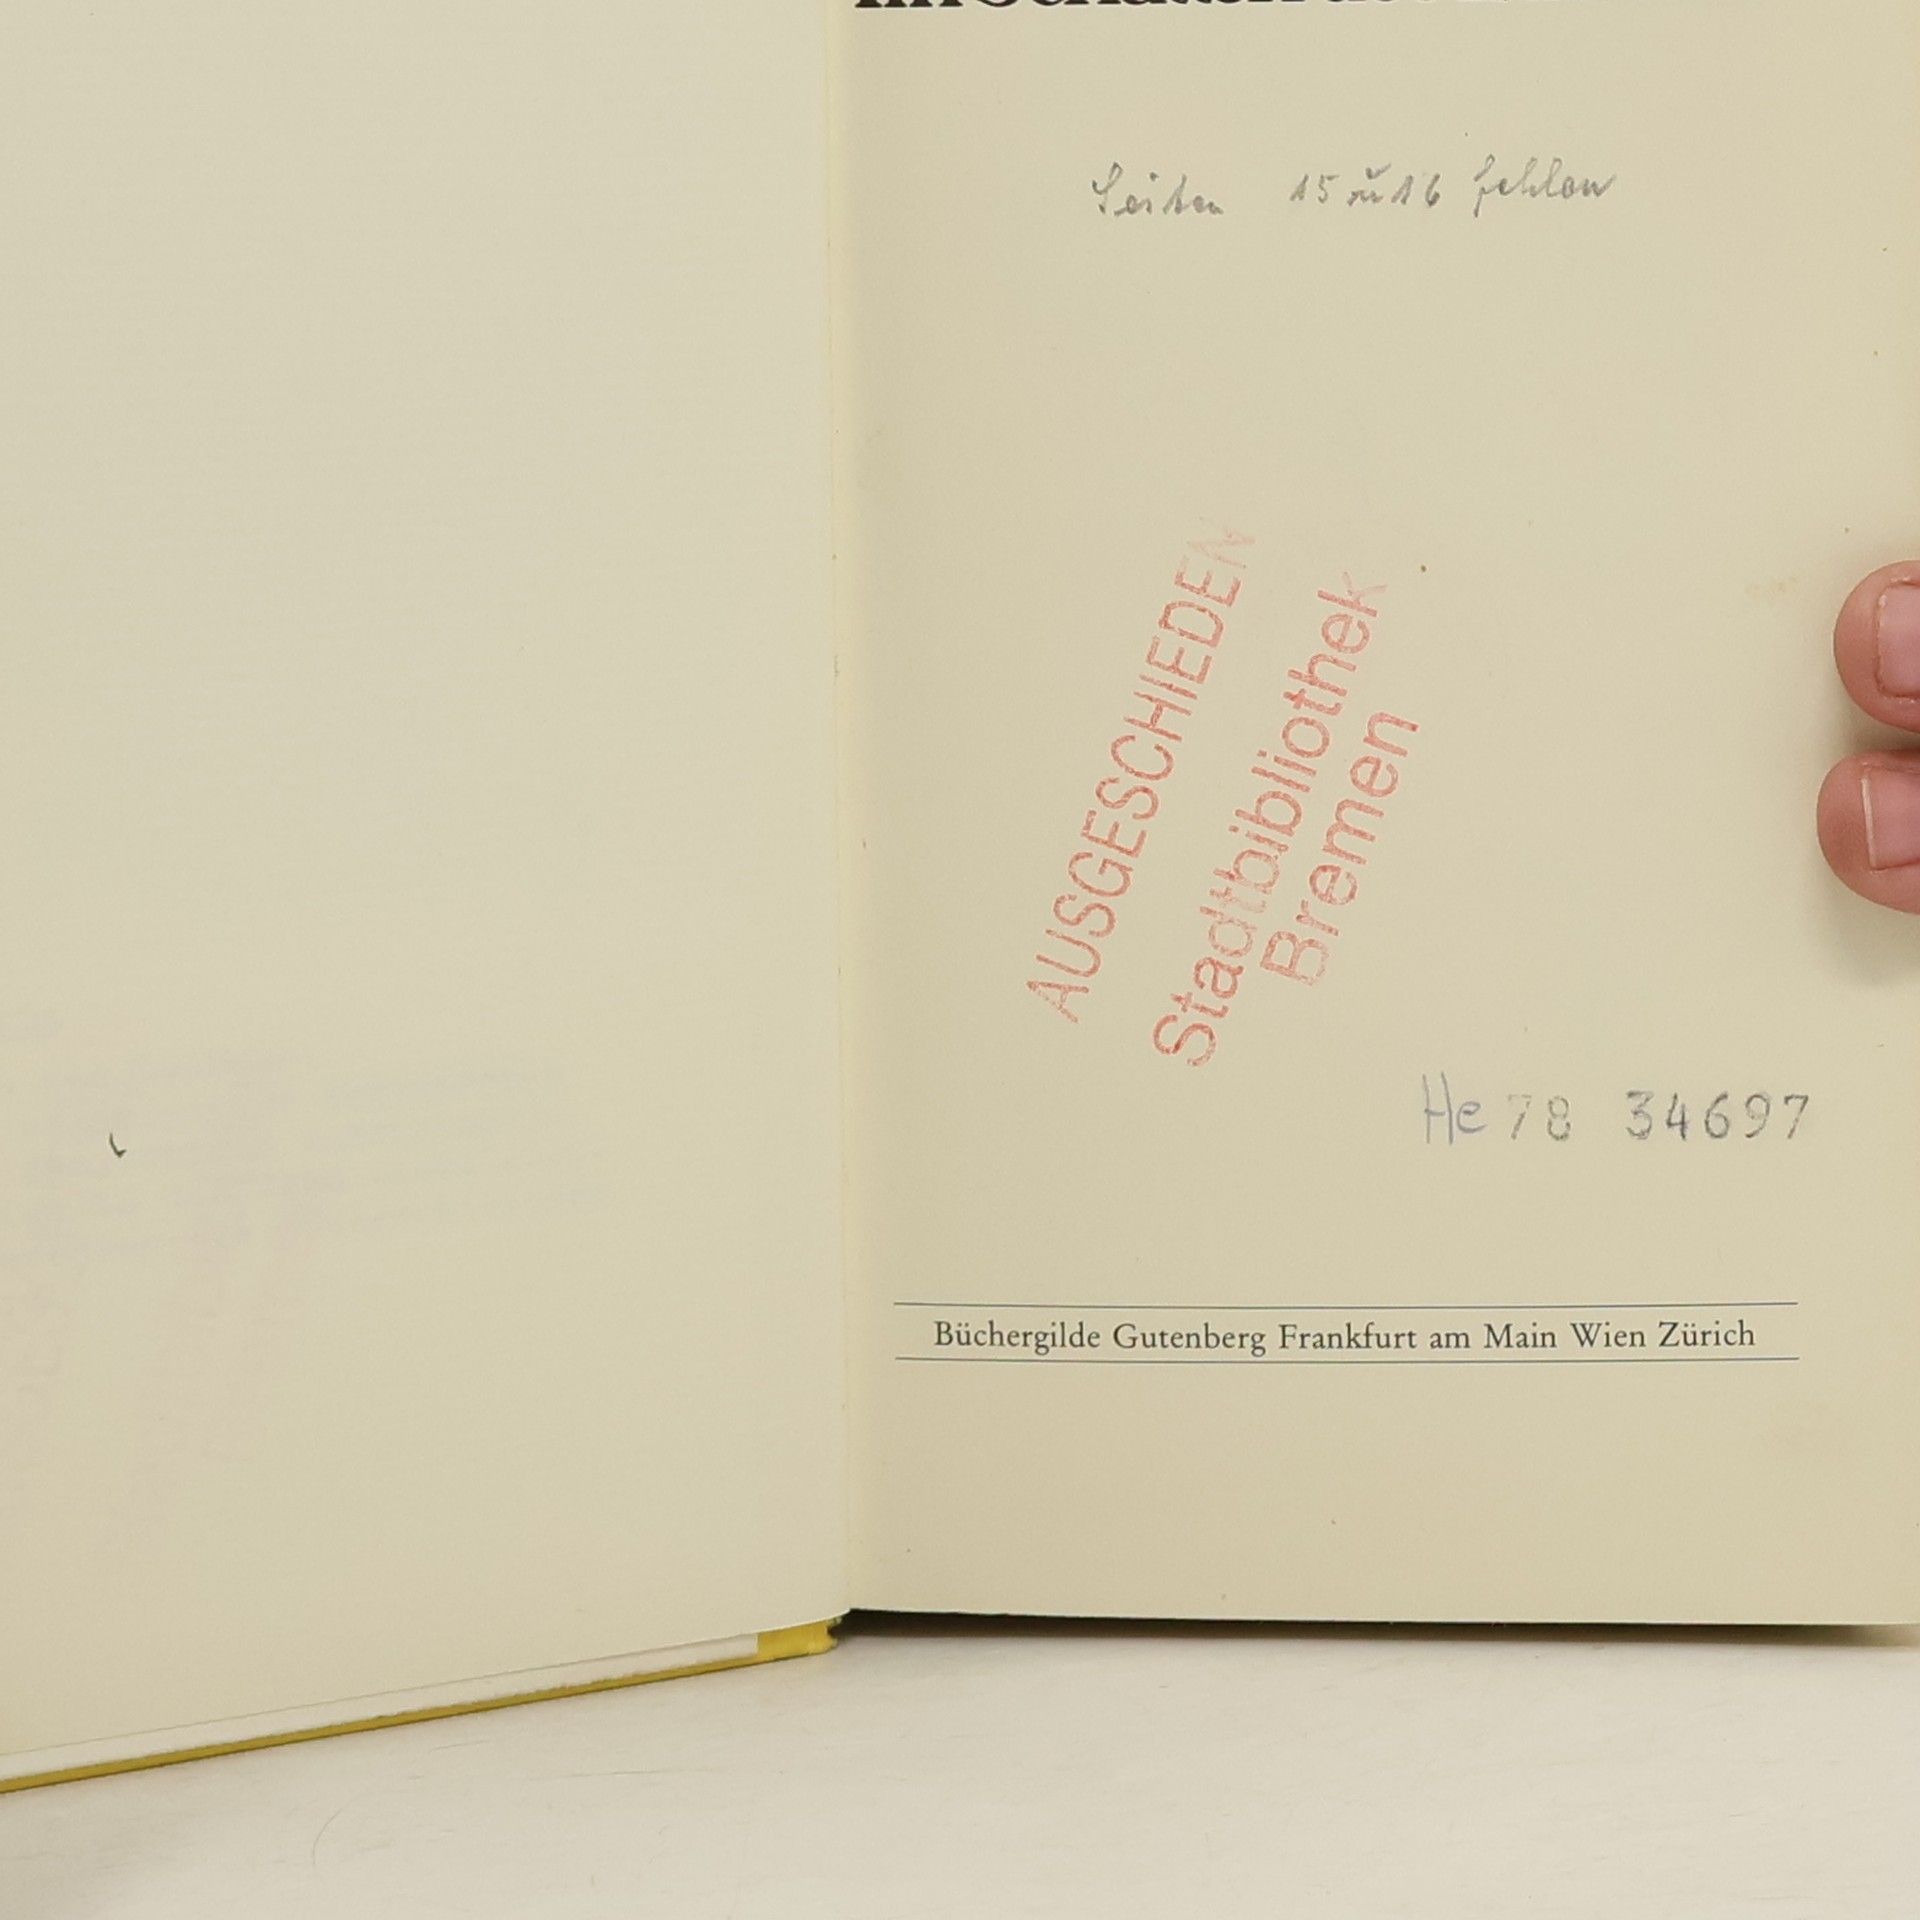 Im Schatten
Seiten 15 u 16 fehlen
AUSGESCHIEDEN
Stadtbibliothek
Bremen
He 78 34697
Büchergilde Gutenberg Frankfurt am Main Wien Zürich